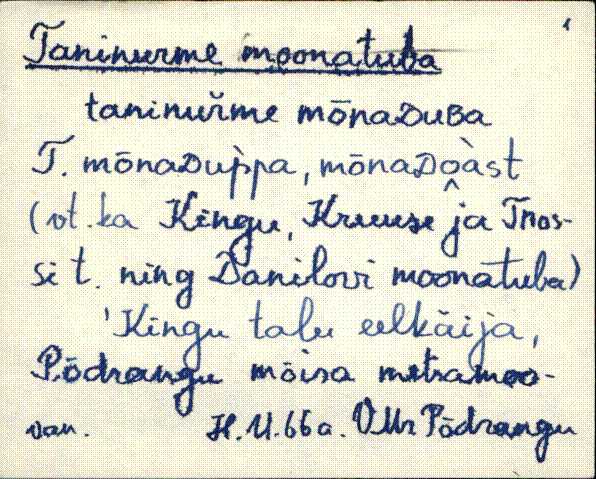 Taninurme moonatuba
taninuřme mōnaᴅuʙa
T. mōnaᴅup̀pa, mōnaᴅoàst
(vt. ka Kingu, Kruuse ja Tros-
si t. ning Danilovi moonatuba)
'Kingu talu eelkäija,
Põdrangu mõisa metsamoo-
van. H. U. 66 a. VMr Põdrangu